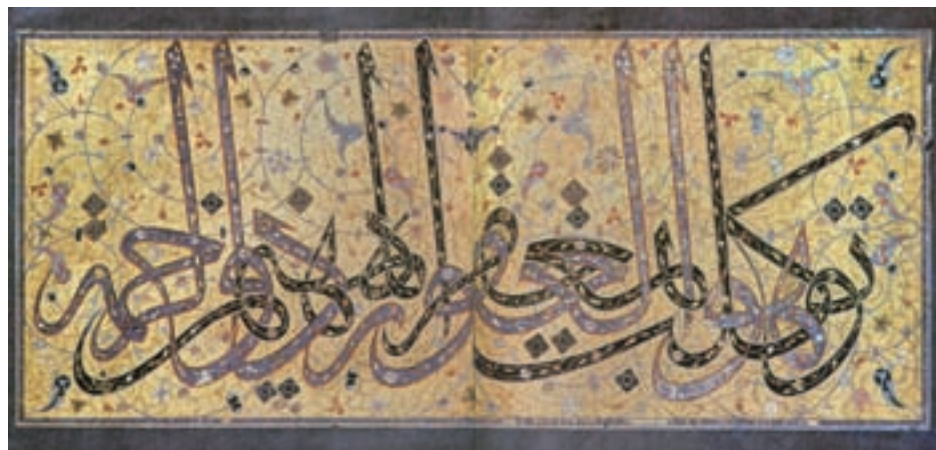 توكل بمغفرة المهيمن
هو الغفور ذو الرحمة